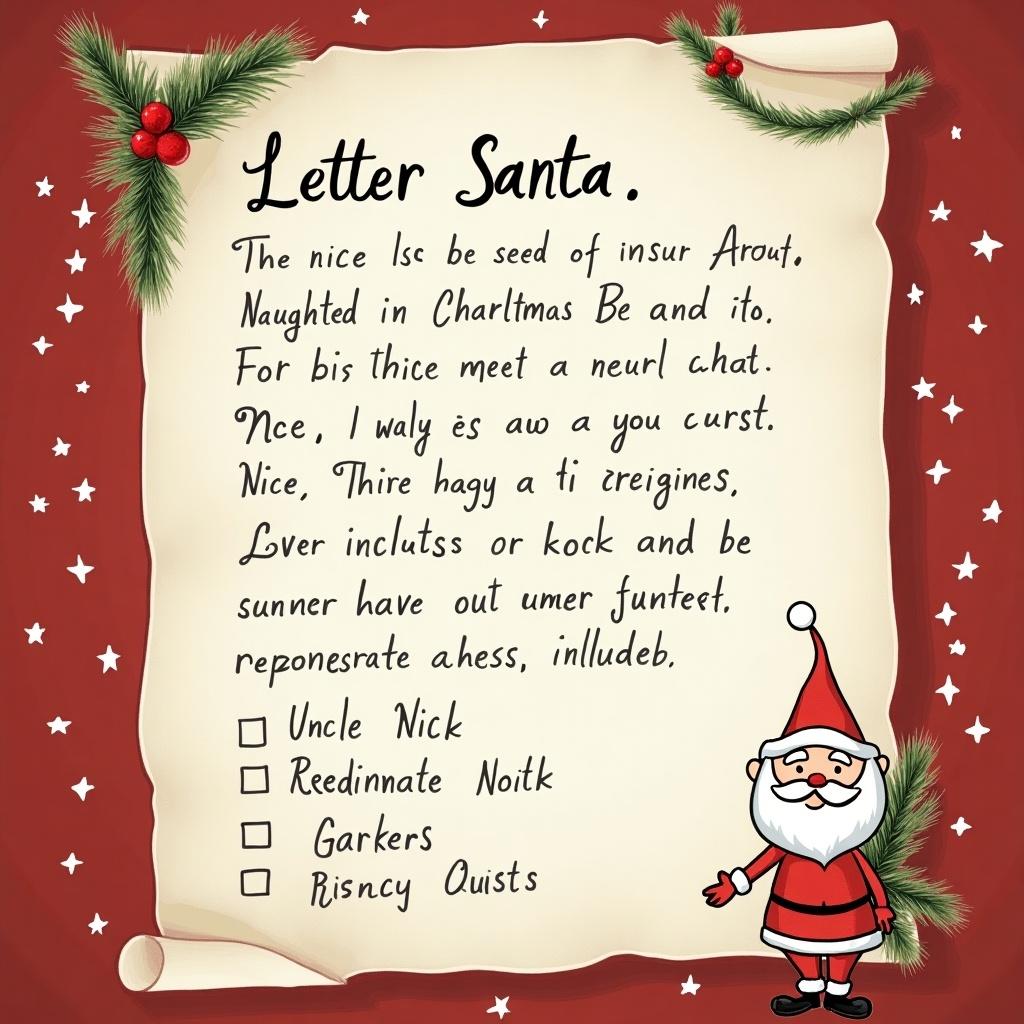 Letter Santa.
The nice lsc be seed of insur Arout.
Naughted in Charltmas Be and ito.
For bis thice meet a neurl chat.
Nce, I waly es aw a you curst.
Nice, Thire hagy a ti creigines,
Lver inclutss or kock and be
sunner have out umer funtest.
reponesrate ahess, inlludeb.
Uncle Nick
Reedinnate Noitk
Garkers
Risncy Quists